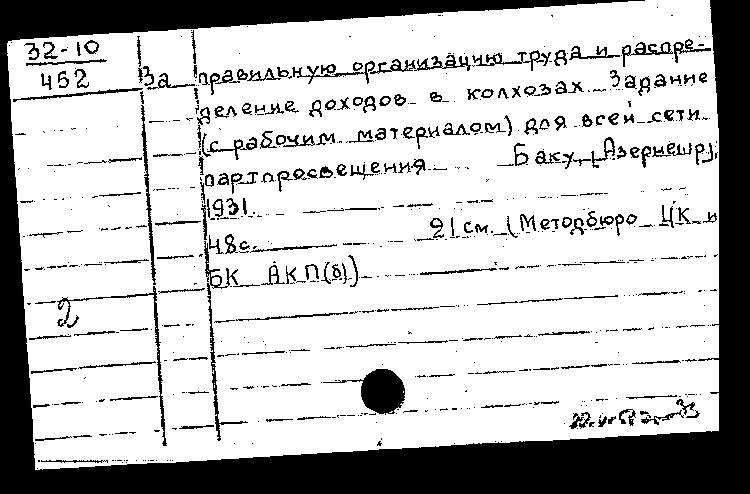 32-10
452
За правильную организацию труда и распре-
деление доходов в колхозах. Задание
(с рабочим материалом) для всей сети
партпросвещения Баку, [Азернешр],
1931.
48с. 21см. (Методбюро ЦК и
БК АКП(б))
2